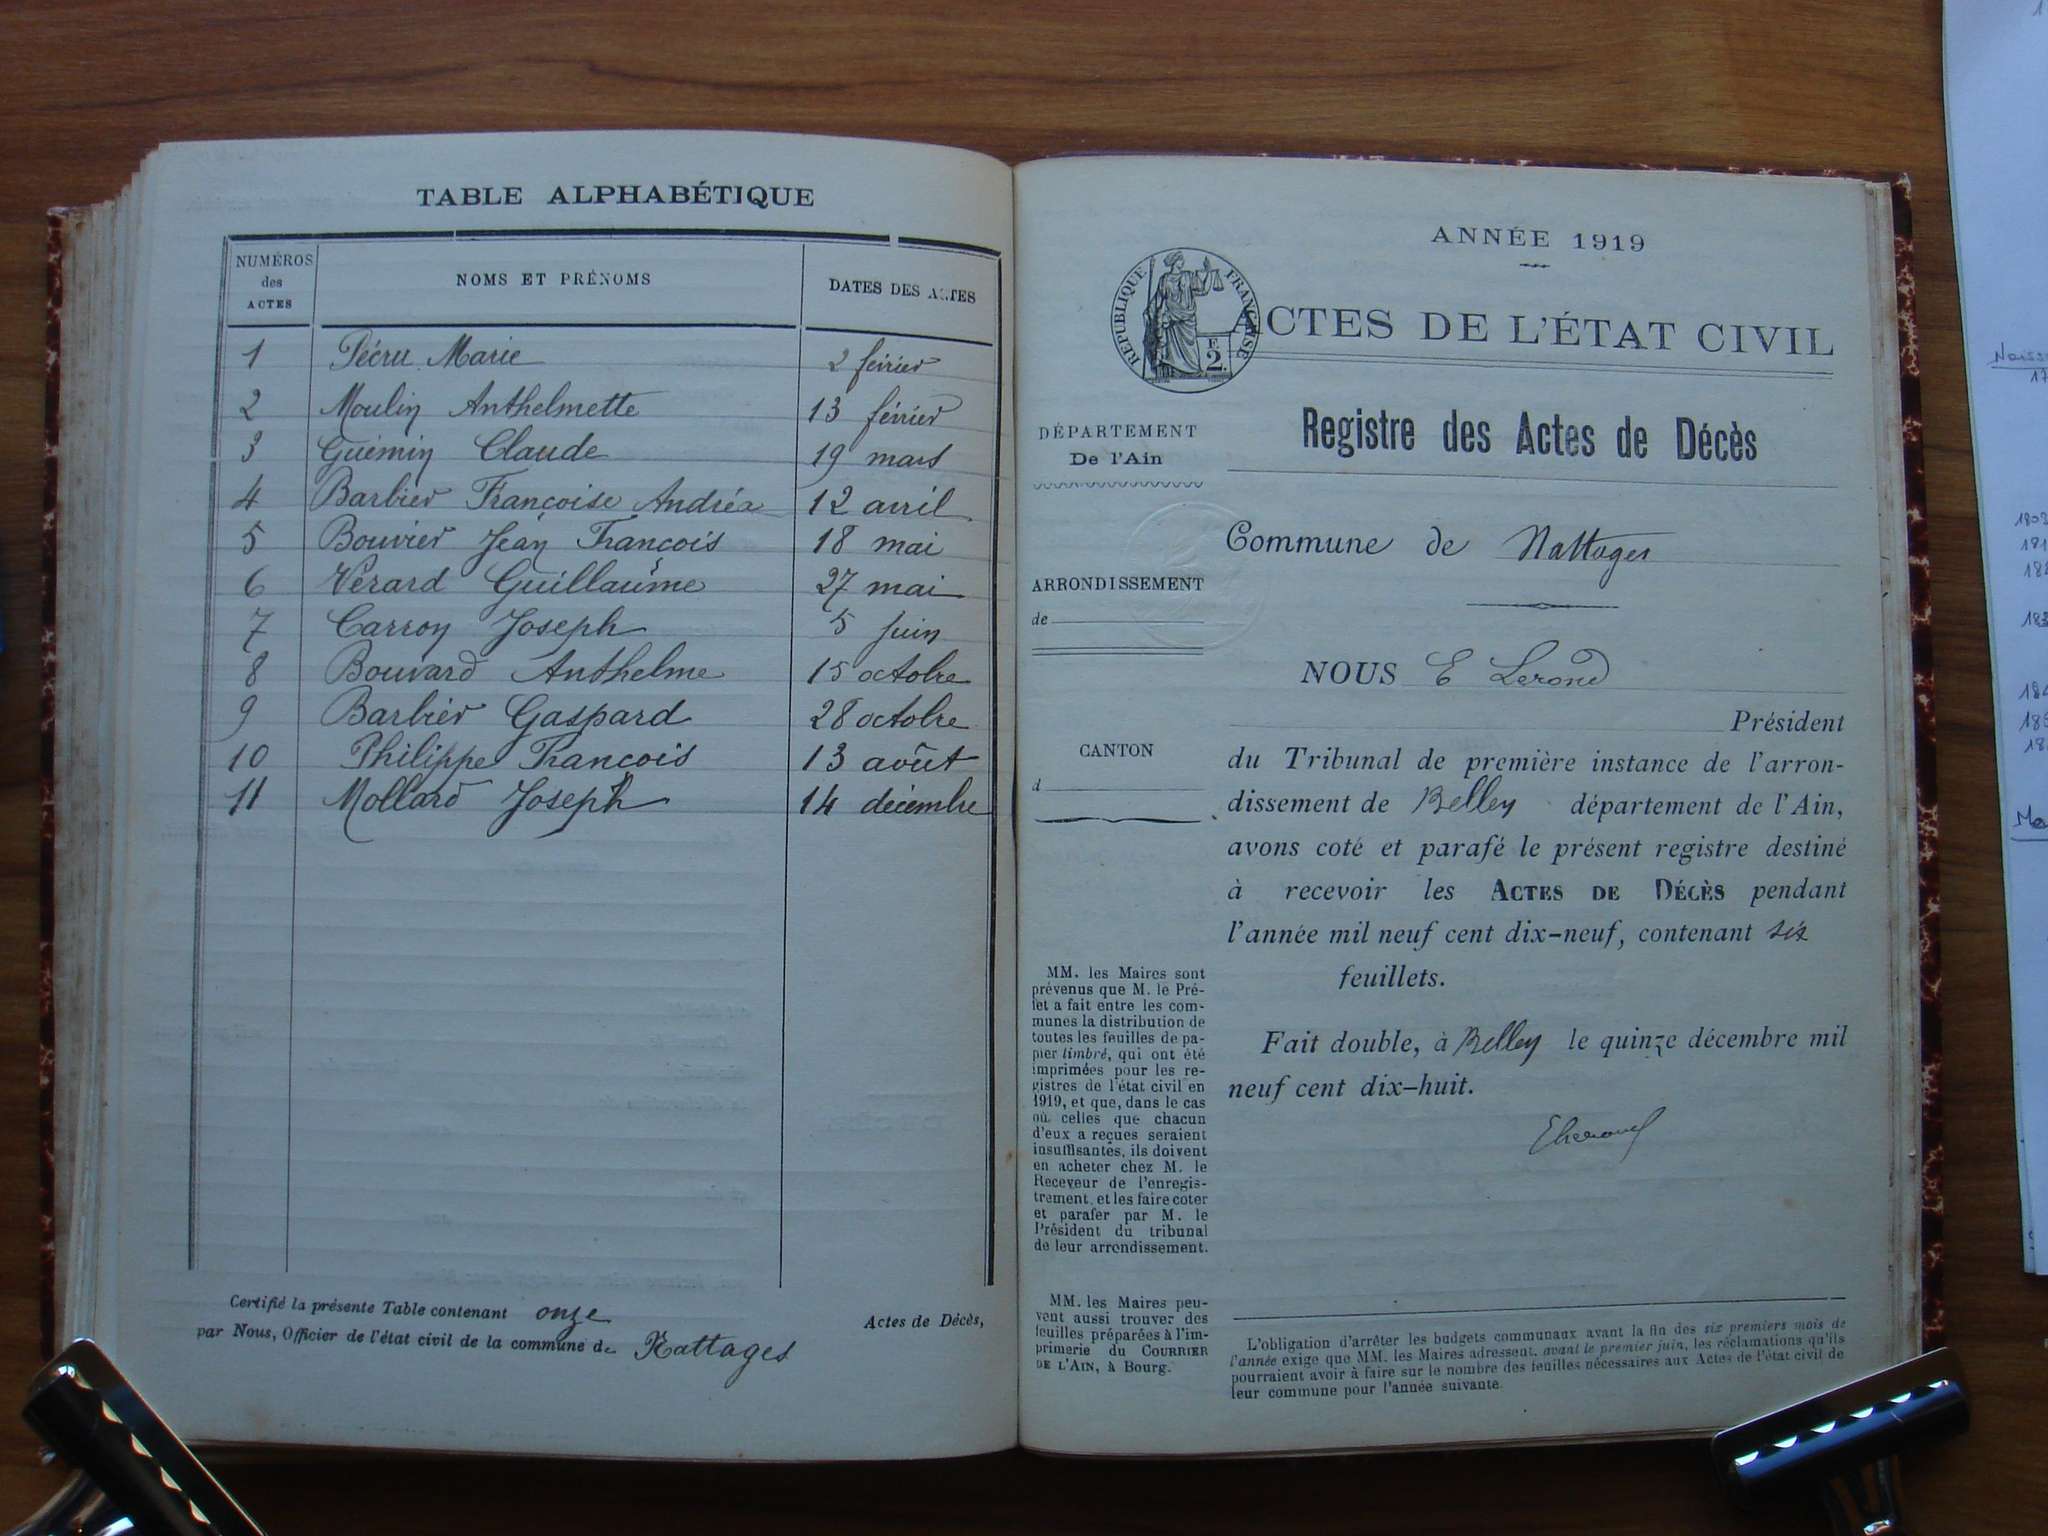 TABLE ALPHABÉTIQUE
NUMÉROS des ACTES NOMS ET PRÉNOMS DATES DES ACTES
1 Pécru Marie 2 février
2 Moulin Anthelmette 13 février
3 Guémin Claude 19 mars
4 Barbier Françoise Andréa 12 avril
5 Bouvier Jean François 18 mai
6 Vérard Guillaume 27 mai
7 Carron Joseph 5 juin
8 Bouvard Anthelme 15 octobre
9 Barbier Gaspard 28 octobre
10 Philippe François 13 août
11 Mollard Joseph 14 décembre
Certifié la présente Table contenant onze Actes de Décès,
par Nous, Officier de l'état civil de la commune de Nattages
ANNÉE 1919
RÉPUBLIQUE FRANÇAISE
E.
2.
ACTES DE L'ÉTAT CIVIL
Registre des Actes de Décès
DÉPARTEMENT
De l'Ain
ARRONDISSEMENT
de
CANTON
d
MM. les Maires sont
prévenus que M. le Pré-
fet a fait entre les com-
munes la distribution de
toutes les feuilles de pa-
pier timbré, qui ont été
imprimées pour les re-
gistres de l'état civil en
1919, et que, dans le cas
où celles que chacun
d'eux a reçues seraient
insuffisantes, ils doivent
en acheter chez M. le
Receveur de l'enregis-
trement, et les faire coter
et parafer par M. le
Président du tribunal
de leur arrondissement.
MM. les Maires peu-
vent aussi trouver des
feuilles préparées à l'im-
primerie du COURRIER
DE L'AIN, à Bourg.
Commune de Nattages
NOUS E Lerond
Président
du Tribunal de première instance de l'arron-
dissement de Belley département de l'Ain,
avons coté et parafé le présent registre destiné
à recevoir les ACTES DE DÉCÈS pendant
l'année mil neuf cent dix-neuf, contenant six
feuillets.
Fait double, à Belley le quinze décembre mil
neuf cent dix-huit.
L'obligation d'arrêter les budgets communaux avant la fin des six premiers mois de
l'année exige que MM. les Maires adressent, avant le premier juin, les réclamations qu'ils
pourraient avoir à faire sur le nombre des feuilles nécessaires aux Actes de l'état civil de
leur commune pour l'année suivante.